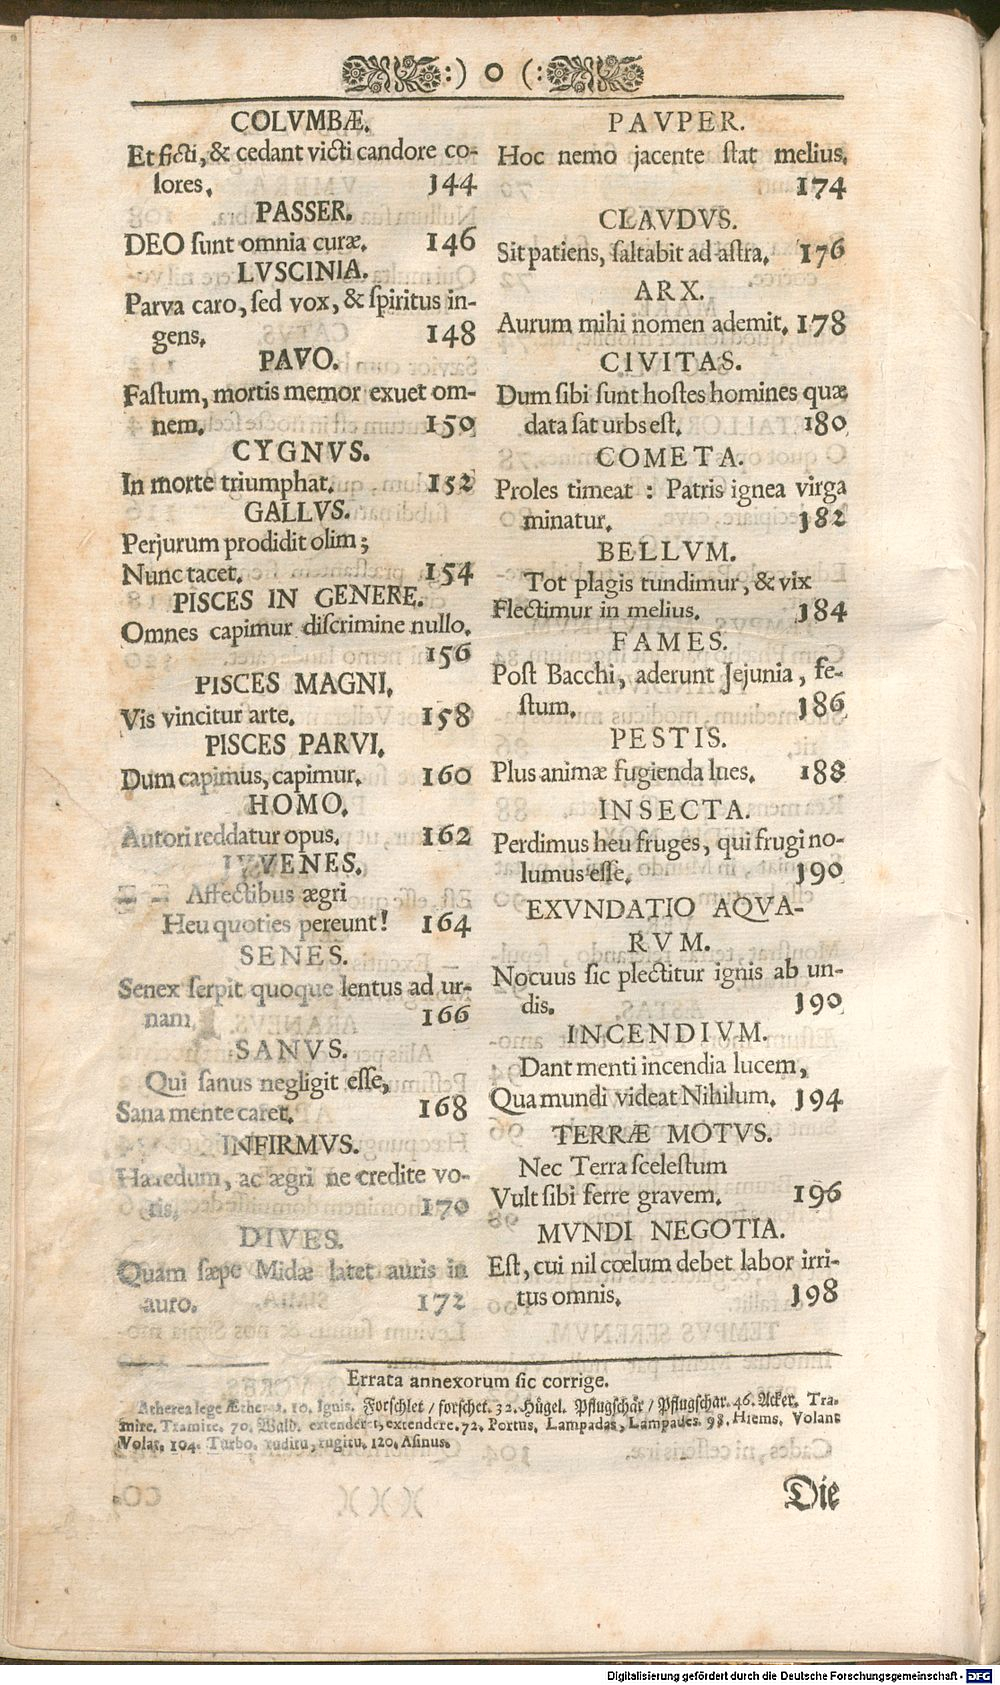 :) o (:
COLVMBÆ.
Et ficti, & cedant victi candore co-
lores. 144
PASSER.
DEO sunt omnia curæ. 146
LVSCINIA.
Parva caro, sed vox, & spiritus in-
gens. 148
PAVO.
Fastum, mortis memor exuet om-
nem. 150
CYGNVS.
In morte triumphat. 152
GALLVS.
Perjurum prodidit olim;
Nunc tacet. 154
PISCES IN GENERE.
Omnes capimur discrimine nullo.
156
PISCES MAGNI.
Vis vincitur arte. 158
PISCES PARVI.
Dum capimus, capimur. 160
HOMO.
Autori reddatur opus. 162
IVVENES.
Affectibus ægri
Heu quoties pereunt! 164
SENES.
Senex serpit quoque lentus ad ur-
nam. 166
SANVS.
Qui sanus negligit esse,
Sana mente caret. 168
INFIRMVS.
Hæredum, ac ægri ne credite vo-
tis. 170
DIVES.
Quam sæpe Midæ latet auris in
auro. 172
PAVPER.
Hoc nemo jacente stat melius.
174
CLAVDVS.
Sit patiens, saltabit ad astra. 176
ARX.
Aurum mihi nomen ademit. 178
CIVITAS.
Dum sibi sunt hostes homines quæ
data sat urbs est. 180
COMETA.
Proles timeat : Patris ignea virga
minatur. 182
BELLVM.
Tot plagis tundimur, & vix
Flectimur in melius. 184
FAMES.
Post Bacchi, aderunt Jejunia, fe-
stum. 186
PESTIS.
Plus animæ fugienda lues. 188
INSECTA.
Perdimus heu fruges, qui frugi no-
lumus esse. 190
EXVNDATIO AQVA-
RVM.
Nocuus sic plectitur ignis ab un-
dis. 190
INCENDIVM.
Dant menti incendia lucem,
Qua mundi videat Nihilum. 194
TERRÆ MOTVS.
Nec Terra scelestum
Vult sibi ferre gravem. 196
MVNDI NEGOTIA.
Est, cui nil cœlum debet labor irri-
tus omnis. 198
Errata annexorum sic corrige.
Ætherea lege Ætherea. 10. Ignis. Forschlet / forschet. 32. Hügel. Pflugschär / Pflugschar. 46. Acker. Tra-
mire. Tramite. 70. Wald. extendere, extendere. 72. Portus, Lampadas, Lampades. 98. Hiems, Volant
Volat. 104. Turbo. ruditu, rugitu. 120. Asinus.
Die
Digitalisierung gefördert durch die Deutsche Forschungsgemeinschaft - DFG